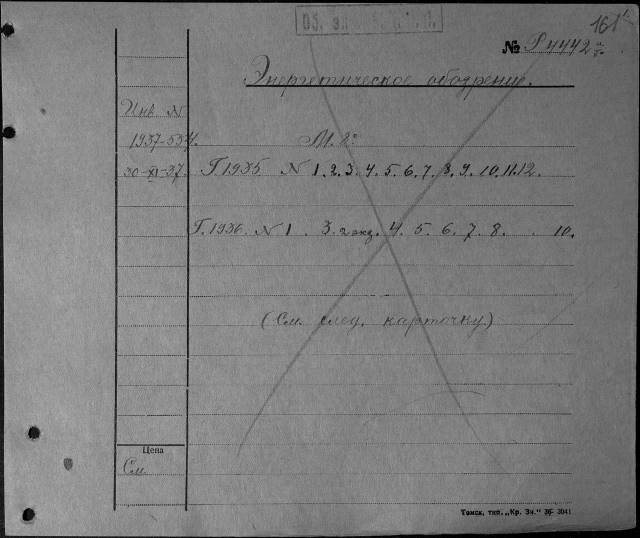 161
№ Р 4442
Энергетическое ободрение.
Инв. N
1937-554.
М. 8º
30-XI-37. Г. 1935 N 1. 2. 3. 4. 5. 6. 7. 8. 9. 10. 11. 12.
Г. 1936. N 1. 3. 2 экз. 4. 5. 6. 7. 8. 10.
(См. след. карточку.)
Цена
См.
Томск, тип. „Кр. Зн." 36 3041